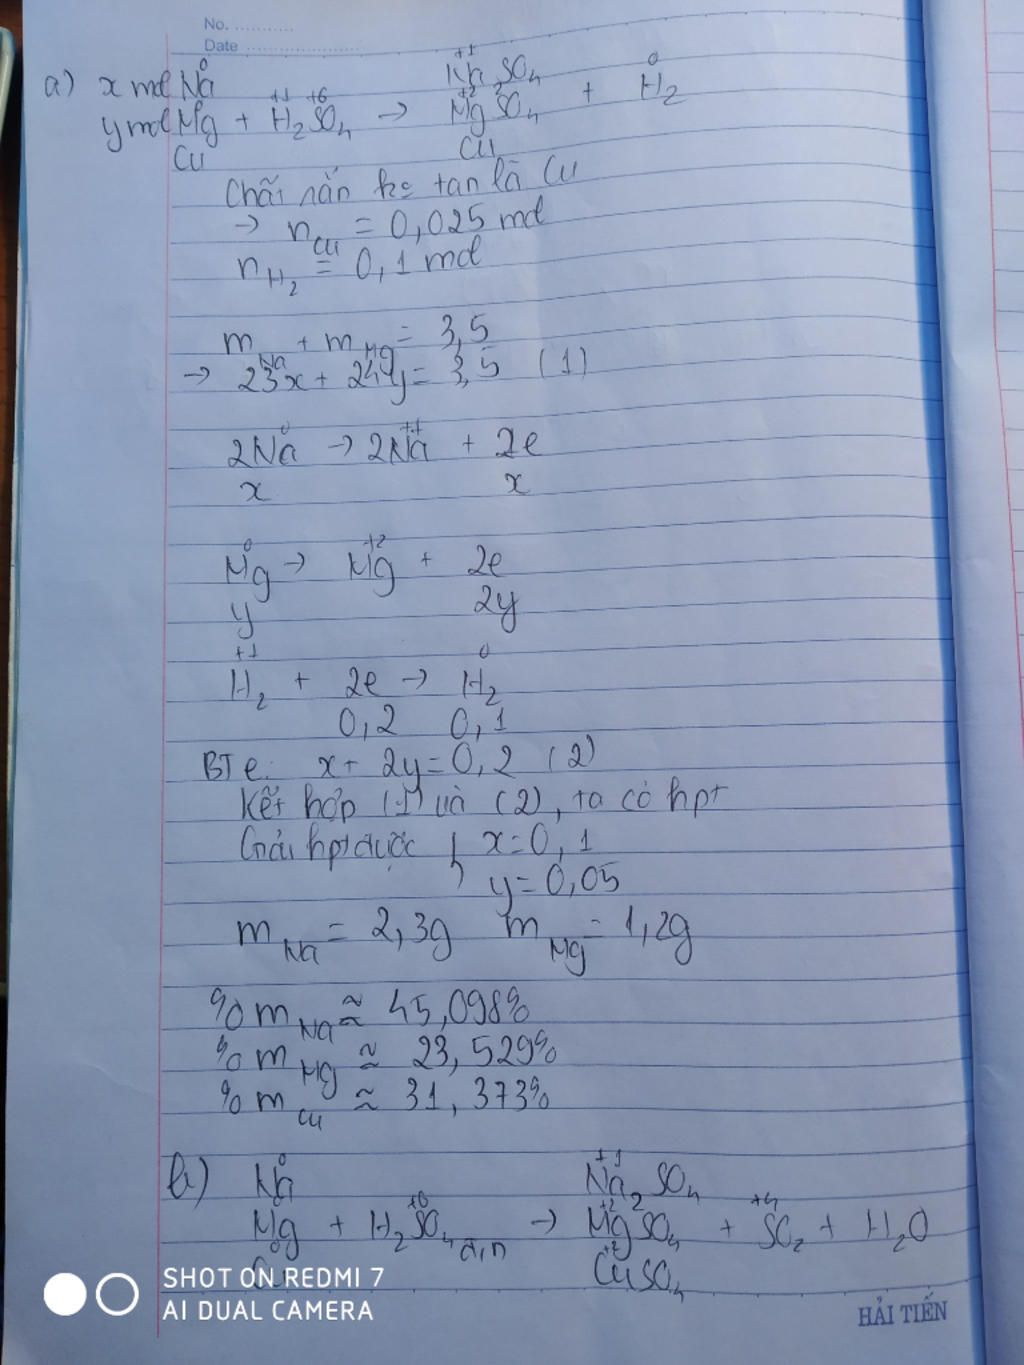 No. ...........
Date .....................
a) x mol Na⁰ Na₂⁺¹SO₄
y mol Mg⁰ + H₂⁺¹S⁺⁶O₄ → Mg⁺²SO₄ + H₂⁰
Cu Cu
Chất rắn ko tan là Cu
→ n Cu = 0,025 mol
n H₂ = 0,1 mol
m Na + m Mg = 3,5
→ 23x + 24y = 3,5 (1)
2Na⁰ → 2Na⁺¹ + 2e
x x
Mg⁰ → Mg⁺² + 2e
y 2y
H₂⁺¹ + 2e → H₂⁰
0,2 0,1
BT e: x + 2y = 0,2 (2)
Kết hợp (1) và (2), ta có hpt
Giải hpt được { x = 0,1
y = 0,05
m Na = 2,3g m Mg = 1,2g
% m Na ≈ 45,098%
% m Mg ≈ 23,529%
% m Cu ≈ 31,373%
b) Na⁰ Na₂⁺¹SO₄
Mg⁰ + H₂S⁺⁶O₄ đ,n → Mg⁺²SO₄ + S⁺⁴O₂ + H₂O
Cu⁰ Cu⁺²SO₄
SHOT ON REDMI 7
AI DUAL CAMERA
HẢI TIẾN